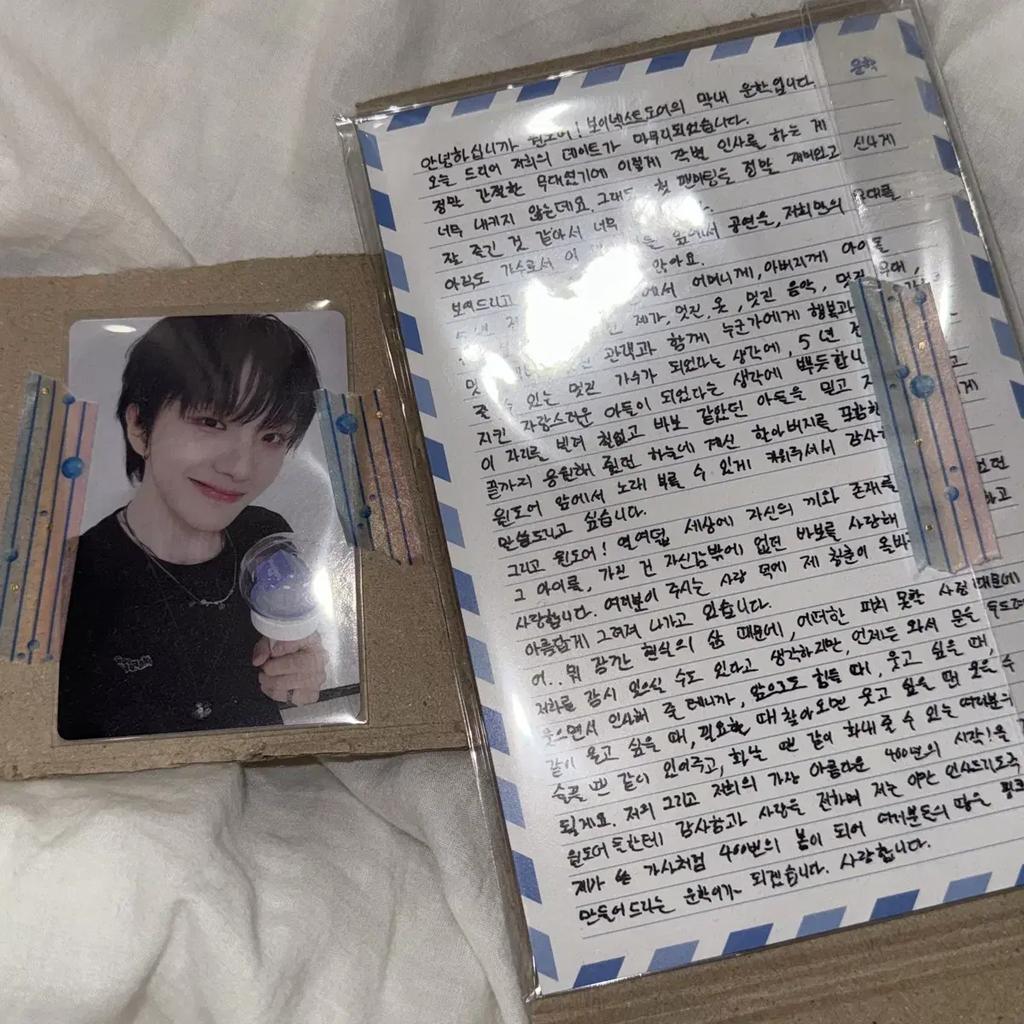 운학
안녕하십니까 원도어! 보이넥스트도어의 막내 운학입니다.
오늘 드디어 저희의 데이트가 마무리되었습니다.
정말 간절한 무대였기에 이렇게 작별 인사를 하는 게
너무 내키지 않는데요. 그래도 첫 팬미팅을 정말 재미있고 신나게
잘 즐긴 것 같아서 너무
아직도 가수로서 이 앞에서 공연을, 저희만의 무대를
보여드리고 않아요.
에서 어머니께, 아버지께 아이돌
제가, 멋진 옷, 멋진 음악, 멋진 무대,
관객과 함께 누군가에게 행복과
줄 수 있는 멋진 가수가 되었다는 생각에, 5년 전
지킨 자랑스러운 아들이 되었다는 생각에 뿌듯합니
이 자리를 빌려 철없고 바보 같았던 아들을 믿고
끝까지 응원해 줬던 하늘에 계신 할아버지를 포함한
원도어 앞에서 노래 부를 수 있게 키워주셔서 감사
말씀드리고 싶습니다.
그리고 원도어! 연예덟 세상에 자신의 끼와 존재를
그 아이를, 가진 건 자신감밖에 없던 바보를 사랑해
사랑합니다. 여러분이 주시는 사랑 덕에 제 청춘이 올바
아름답게 그려져 나가고 있습니다.
어.. 뭐 잠깐 현실의 삶 때문에, 어떠한 피치 못할 사정 때문에
저희를 잠시 잊으실 수도 있다고 생각하지만, 언제든 와서 문을 두드려
웃으면서 인사해 줄 테니까, 앞으로도 힘들 때, 웃고 싶을 때,
같이 울고 싶을 때, 필요할 때 찾아오면 웃고 싶을 땐 웃을 수
슬플 땐 같이 있어주고, 화날 땐 같이 화내 줄 수 있는 여러분의
될게요. 저의 그리고 저희의 가장 아름다운 400번의 시작!을
원도어들한테 감사함과 사랑을 전하며 저는 이만 인사드리도록
제가 쓴 가사처럼 400번의 봄이 되어 여러분들의 땅을 핑크
만들어드리는 운학이가 되겠습니다. 사랑합니다.